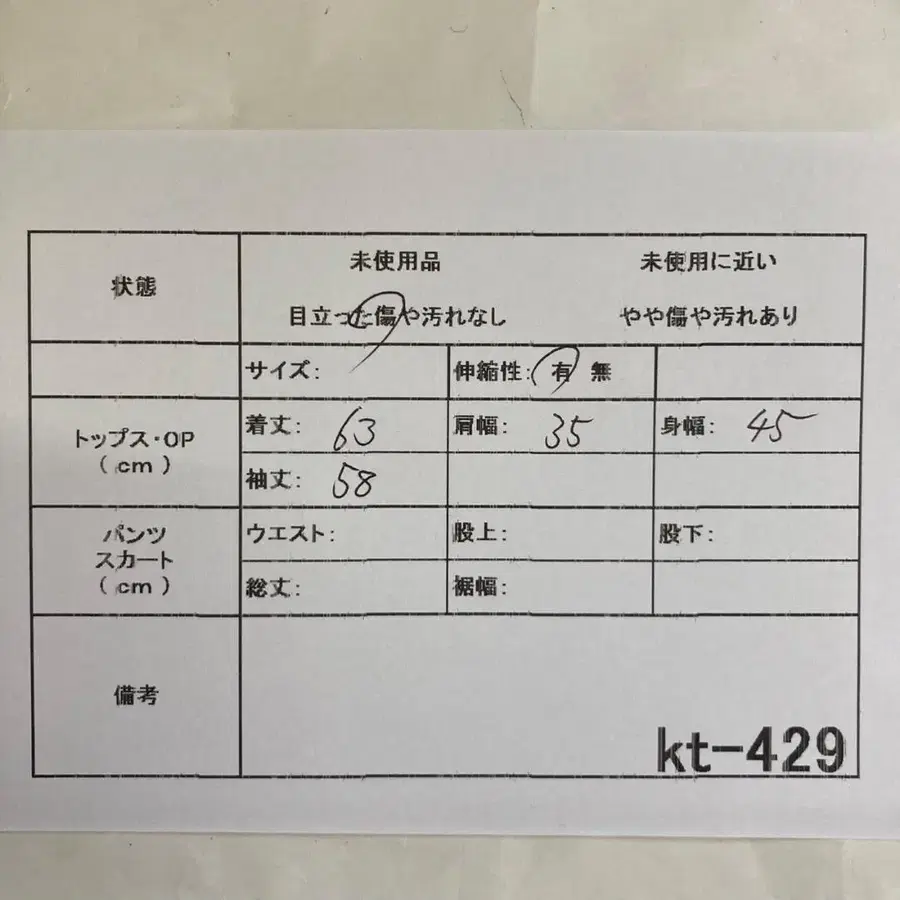 状態
未使用品 未使用に近い
目立った傷や汚れなし やや傷や汚れあり
サイズ: 伸縮性: 有 無
トップス・OP
(cm)
着丈: 63 肩幅: 35 身幅: 45
袖丈: 58
パンツ
スカート
(cm)
ウエスト: 股上: 股下:
総丈: 裾幅:
備考
kt-429